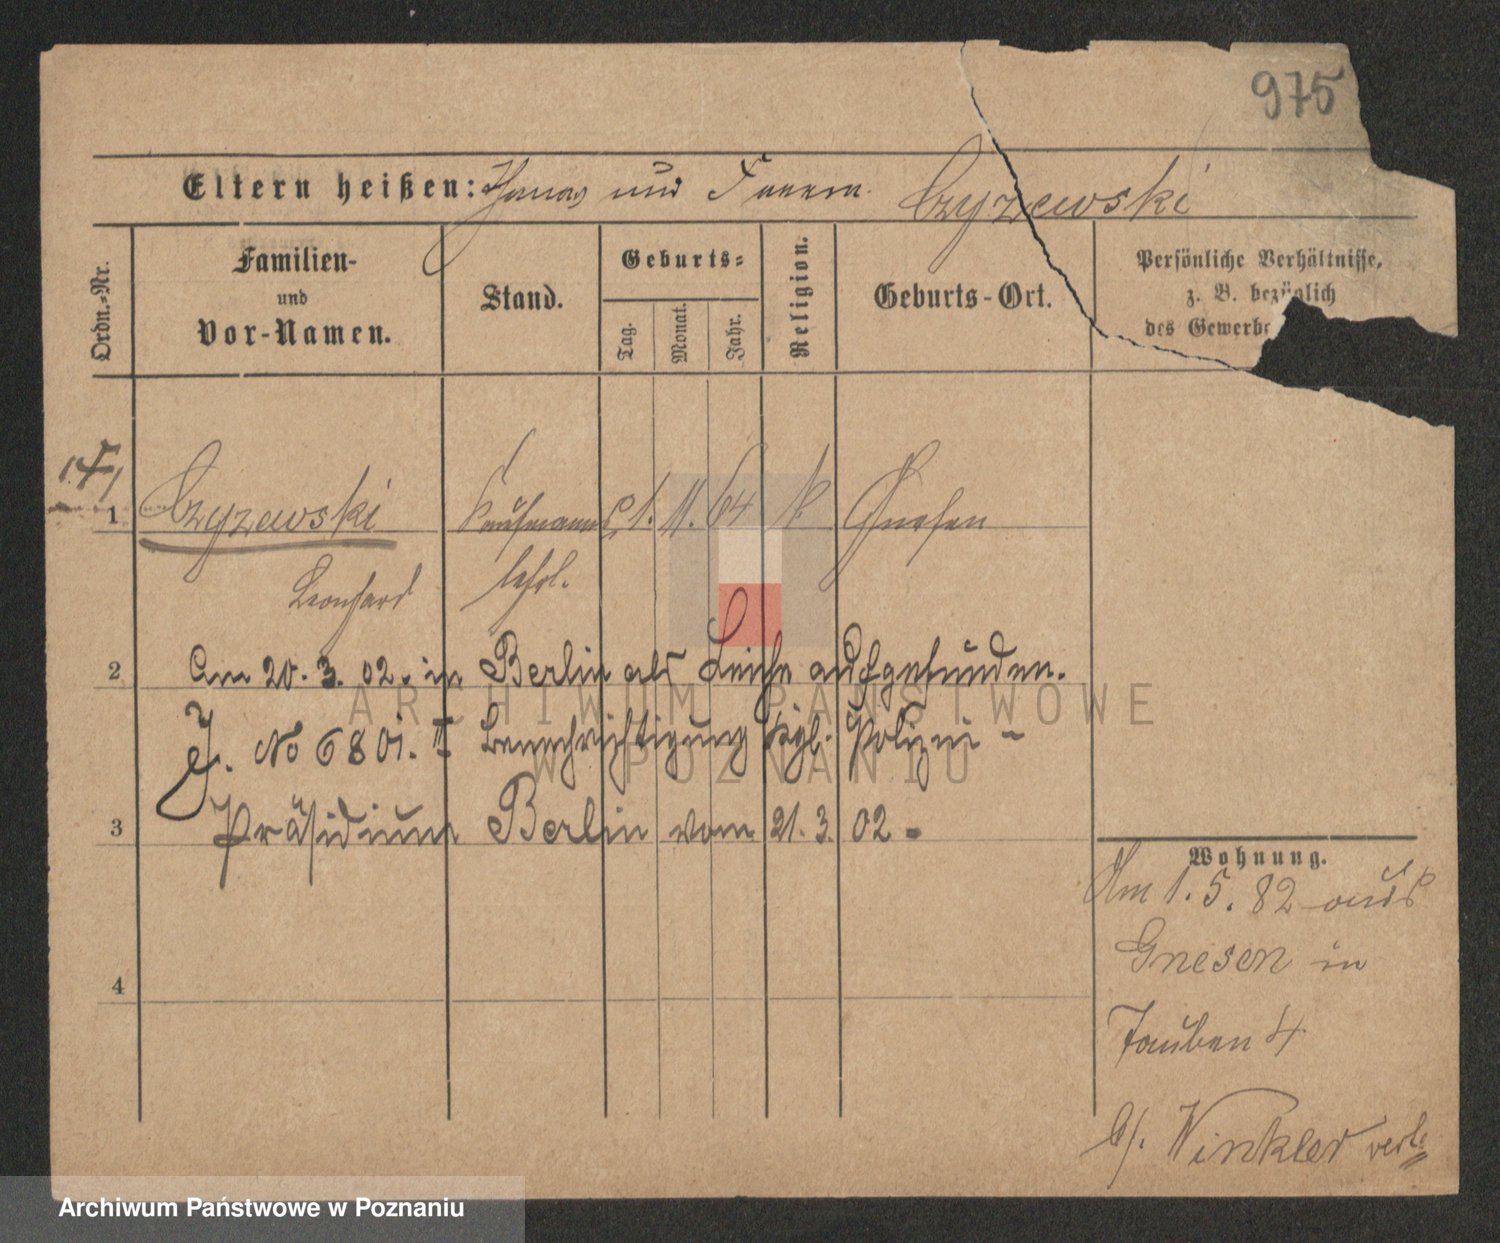 975
Eltern heißen: und Czyzewski
Ordn.-Nr.
Familien-
und
Vor-Namen.
Stand.
Geburts-
Tag.
Monat.
Jahr.
Religion.
Geburts-Ort.
Persönliche Verhältnisse,
z. B. bezüglich
des Gewerbe
1 Czyzewski Kaufmanns 1. 11. 64 k. Gnesen
Leonhard lehrl.
2 Am 20. 3. 02. in Berlin als Leiche aufgefunden.
J. No 6801. II Benachrichtigung Kgl. Polizei-
3 Präsidium Berlin vom 21. 3. 02.
4
Wohnung.
Am 1. 5. 82 aus
Gnesen in
Tauben 4
b/. Winkler
ARCHIWUM PAŃSTWOWE
W POZNANIU
Archiwum Państwowe w Poznaniu